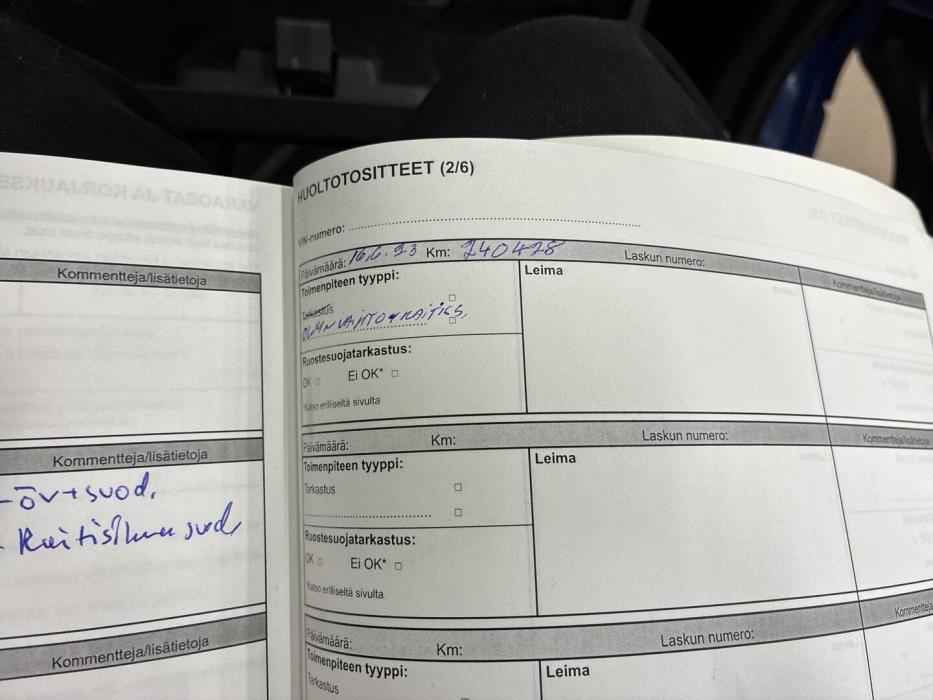 Kommentteja/lisätietoja
Kommentteja/lisätietoja
- öv+suod.
- Raitisilma suod
Kommentteja/lisätietoja
HUOLTOTOSITTEET (2/6)
VIN-numero:
Päivämäärä: 16.6.23 Km: 240428 Laskun numero: Kommentteja/lisätietoja
Toimenpiteen tyyppi: Leima
Tarkastus
ÖLJYN VAIHTO + RAITIS.
Ruostesuojatarkastus:
OK Ei OK*
*Katso erilliseltä sivulta
Päivämäärä: Km: Laskun numero: Kommentteja/lisätietoja
Toimenpiteen tyyppi: Leima
Tarkastus
Ruostesuojatarkastus:
OK Ei OK*
*Katso erilliseltä sivulta
Päivämäärä: Km: Laskun numero: Kommentteja
Toimenpiteen tyyppi: Leima
Tarkastus